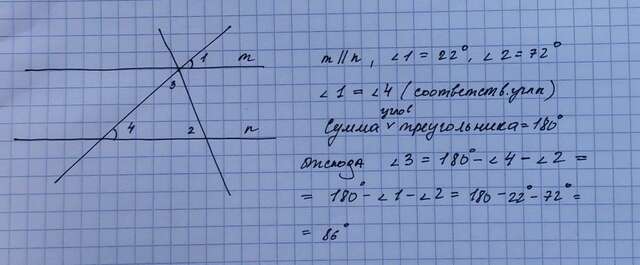 1 m
3
4 2 n
m || n, ∠1 = 22°, ∠2 = 72°
∠1 = ∠4 (соответств. углы)
углов
Сумма ∨ треугольника = 180°
отсюда ∠3 = 180° - ∠4 - ∠2 =
= 180° - ∠1 - ∠2 = 180 - 22° - 72° =
= 86°